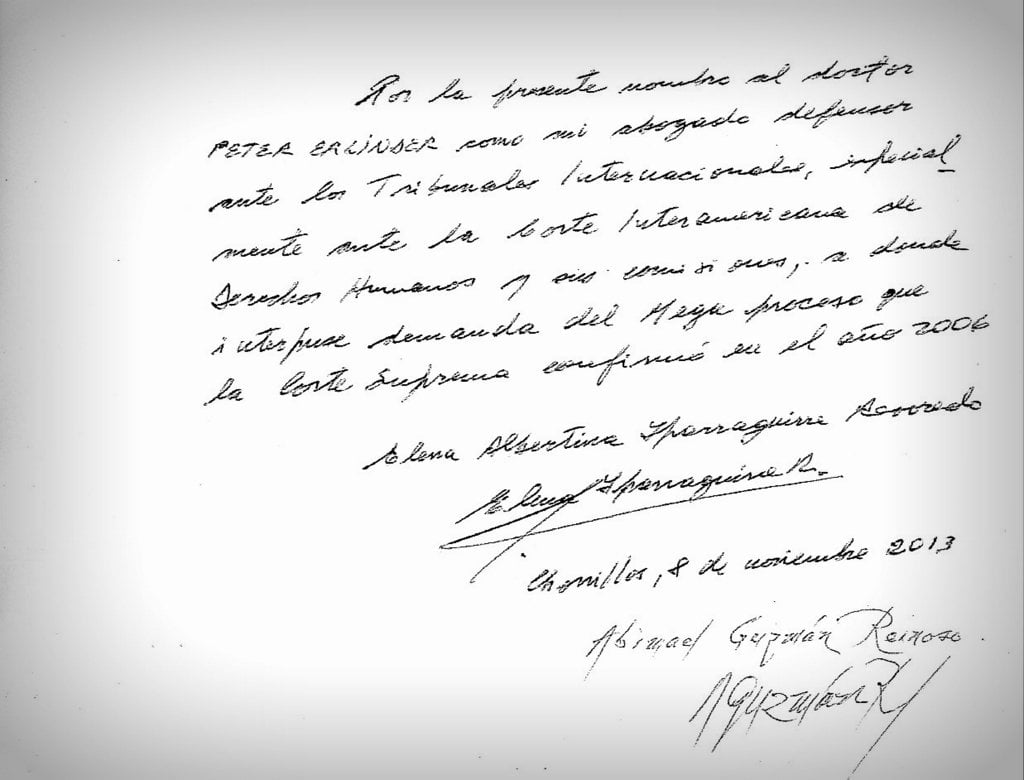 Por la presente nombro al doctor
PETER ERLINDER como mi abogado defensor
ante los Tribunales Internacionales, especial_
mente ante la Corte Interamericana de
Derechos Humanos y sus comisiones, a donde
interpuse demanda del Mega proceso que
la Corte Suprema confirmó en el año 2006
Elena Albertina Yparraguirre Revoredo
Elena Yparraguirre R.
Chorrillos, 8 de noviembre 2013
Abimael Guzmán Reinoso.
AGuzmánR